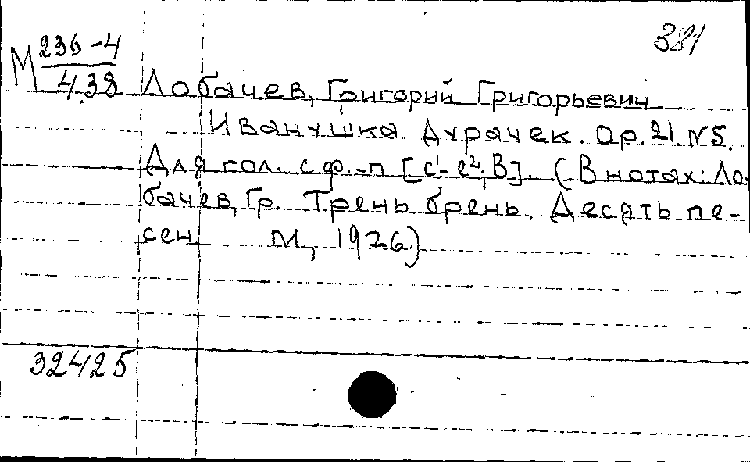 381
М 236-4
4.38
Лобачев, Григорий Григорьевич
Иванушка дурачек. Op. 21. N5.
Для гол. с ф.-п [c¹-e². B]. (В нотах: Ло-
бачев, Гр. Трень брень. Десять пе-
сен М, 1926)
32425